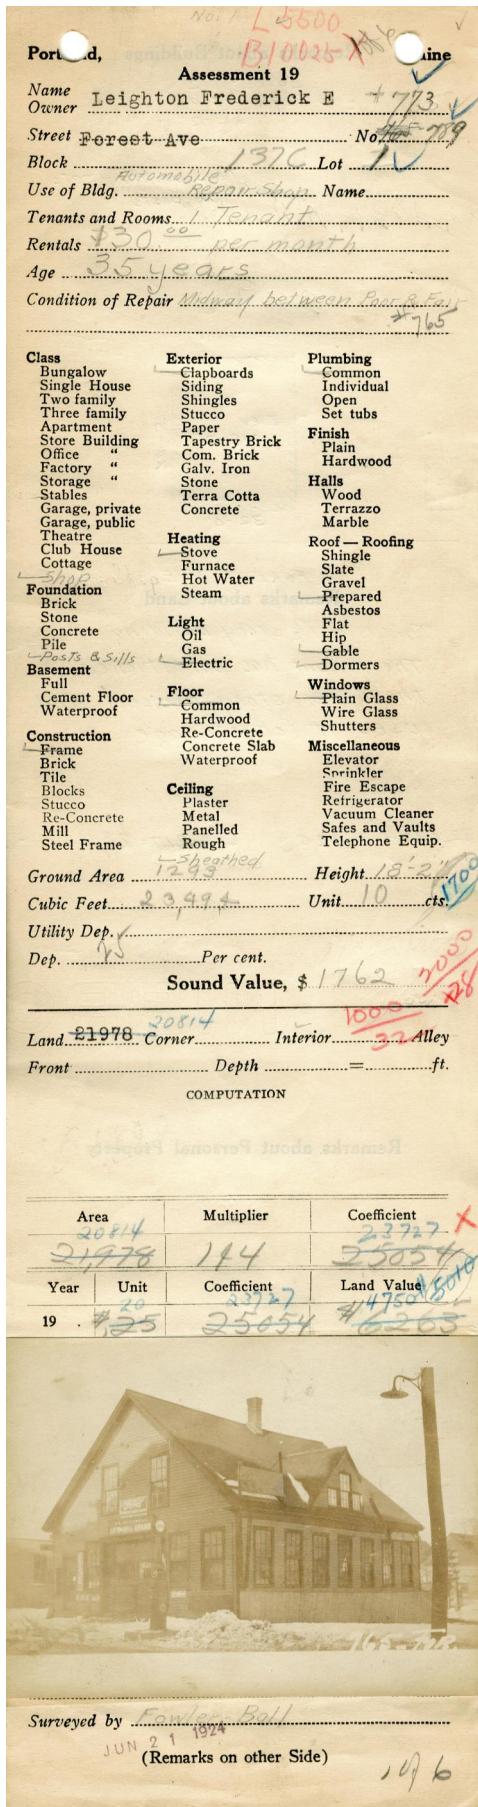 No. 1 L 5500
B10025 X 1 of 6
Portland, Maine
Assessment 19
Name
Owner Leighton Frederick E #773
Street Forest Ave No. 789
Block 137C Lot 1
Automobile
Use of Bldg. Repair Shop Name
Tenants and Rooms 1 Tenant
Rentals $30.00 per month
Age 35 years
Condition of Repair Midway between Poor & Fair
#765
Class
Bungalow
Single House
Two family
Three family
Apartment
Store Building
Office "
Factory "
Storage "
Stables
Garage, private
Garage, public
Theatre
Club House
Cottage
Shop
Foundation
Brick
Stone
Concrete
Pile
Posts & Sills
Basement
Full
Cement Floor
Waterproof
Construction
Frame
Brick
Tile
Blocks
Stucco
Re-Concrete
Mill
Steel Frame
Exterior
Clapboards
Siding
Shingles
Stucco
Paper
Tapestry Brick
Com. Brick
Galv. Iron
Stone
Terra Cotta
Concrete
Heating
Stove
Furnace
Hot Water
Steam
Light
Oil
Gas
Electric
Floor
Common
Hardwood
Re-Concrete
Concrete Slab
Waterproof
Ceiling
Plaster
Metal
Panelled
Rough
Sheathed
Plumbing
Common
Individual
Open
Set tubs
Finish
Plain
Hardwood
Halls
Wood
Terrazzo
Marble
Roof — Roofing
Shingle
Slate
Gravel
Prepared
Asbestos
Flat
Hip
Gable
Dormers
Windows
Plain Glass
Wire Glass
Shutters
Miscellaneous
Elevator
Sprinkler
Fire Escape
Refrigerator
Vacuum Cleaner
Safes and Vaults
Telephone Equip.
Ground Area 1293 Height 18'-2"
Cubic Feet 23,494 Unit 10 cts. 1700
Utility Dep.
Dep. 25 Per cent.
Sound Value, $ 1762 2000
+28
20814 1000
32
Land 21978 Corner Interior Alley
Front Depth = ft.
COMPUTATION
Area Multiplier Coefficient
20814 23727 X
21,978 114 25054
Year Unit Coefficient Land Value $5010
20 23727 4750
19 . $.25 25054 $6263
Surveyed by Fowler-Ball
JUN 21 1924
(Remarks on other Side)
1 of 6